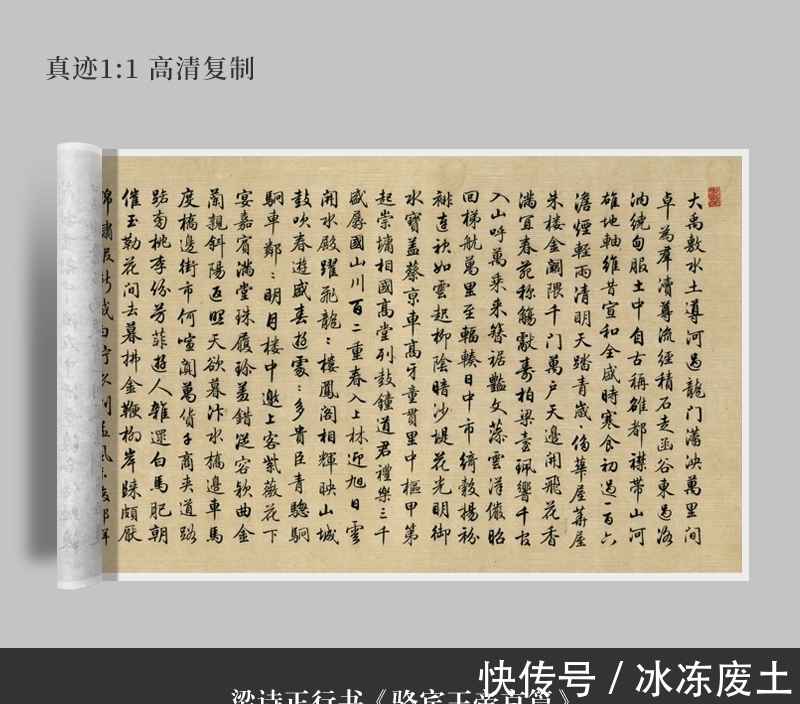 真迹1:1 高清复制
大禹敷水土導河過龍门瀁泱萬里间
卓為羣瀆尊流經積石走函谷東過洛
汭繞甸服土中自古稱雒都襟帶山河
雄地軸維昔宣和全盛時寒食初過一百六
澹煙輕雨清明天踏青歲歲傷華屋
朱樓金闕隈千门萬户天邊開飛花香
滿宜春苑称觞獻壽柏梁臺珮響千官
入山呼萬乘来簪裾艷文藻雲洋儼昭
回梯航萬里至輻輳日中市綺縠楊袀
裶連袂如雲起柳陰暗沙堤花光明御
水寶盖蔡京車高牙童貫里中樞甲第
起崇墉相國高堂列鼓鐘道君禮樂三千
盛孱國山川百二重春入上林迎旭日雲
開水殿躍飛龍龍樓鳳阁相輝映山城
鼓吹春遊盛春遊處處多貴臣青驄駉
駉車鄰鄰明月楼中邀上客紫薇花下
宴嘉賓滿堂珠履珍盖錯從容欵曲金
蘭親斜陽返照天欲暮汴水橋邊車馬
度橋邊街市何喧闐萬貨子商夹道路
路南桃李份芳菲遊人雜遝白馬肥朝
催玉勒花间去暮拂金鞭柳岸睐頗厭
快传号 / 冰冻废土
梁诗正行书《骆宾王帝京篇》